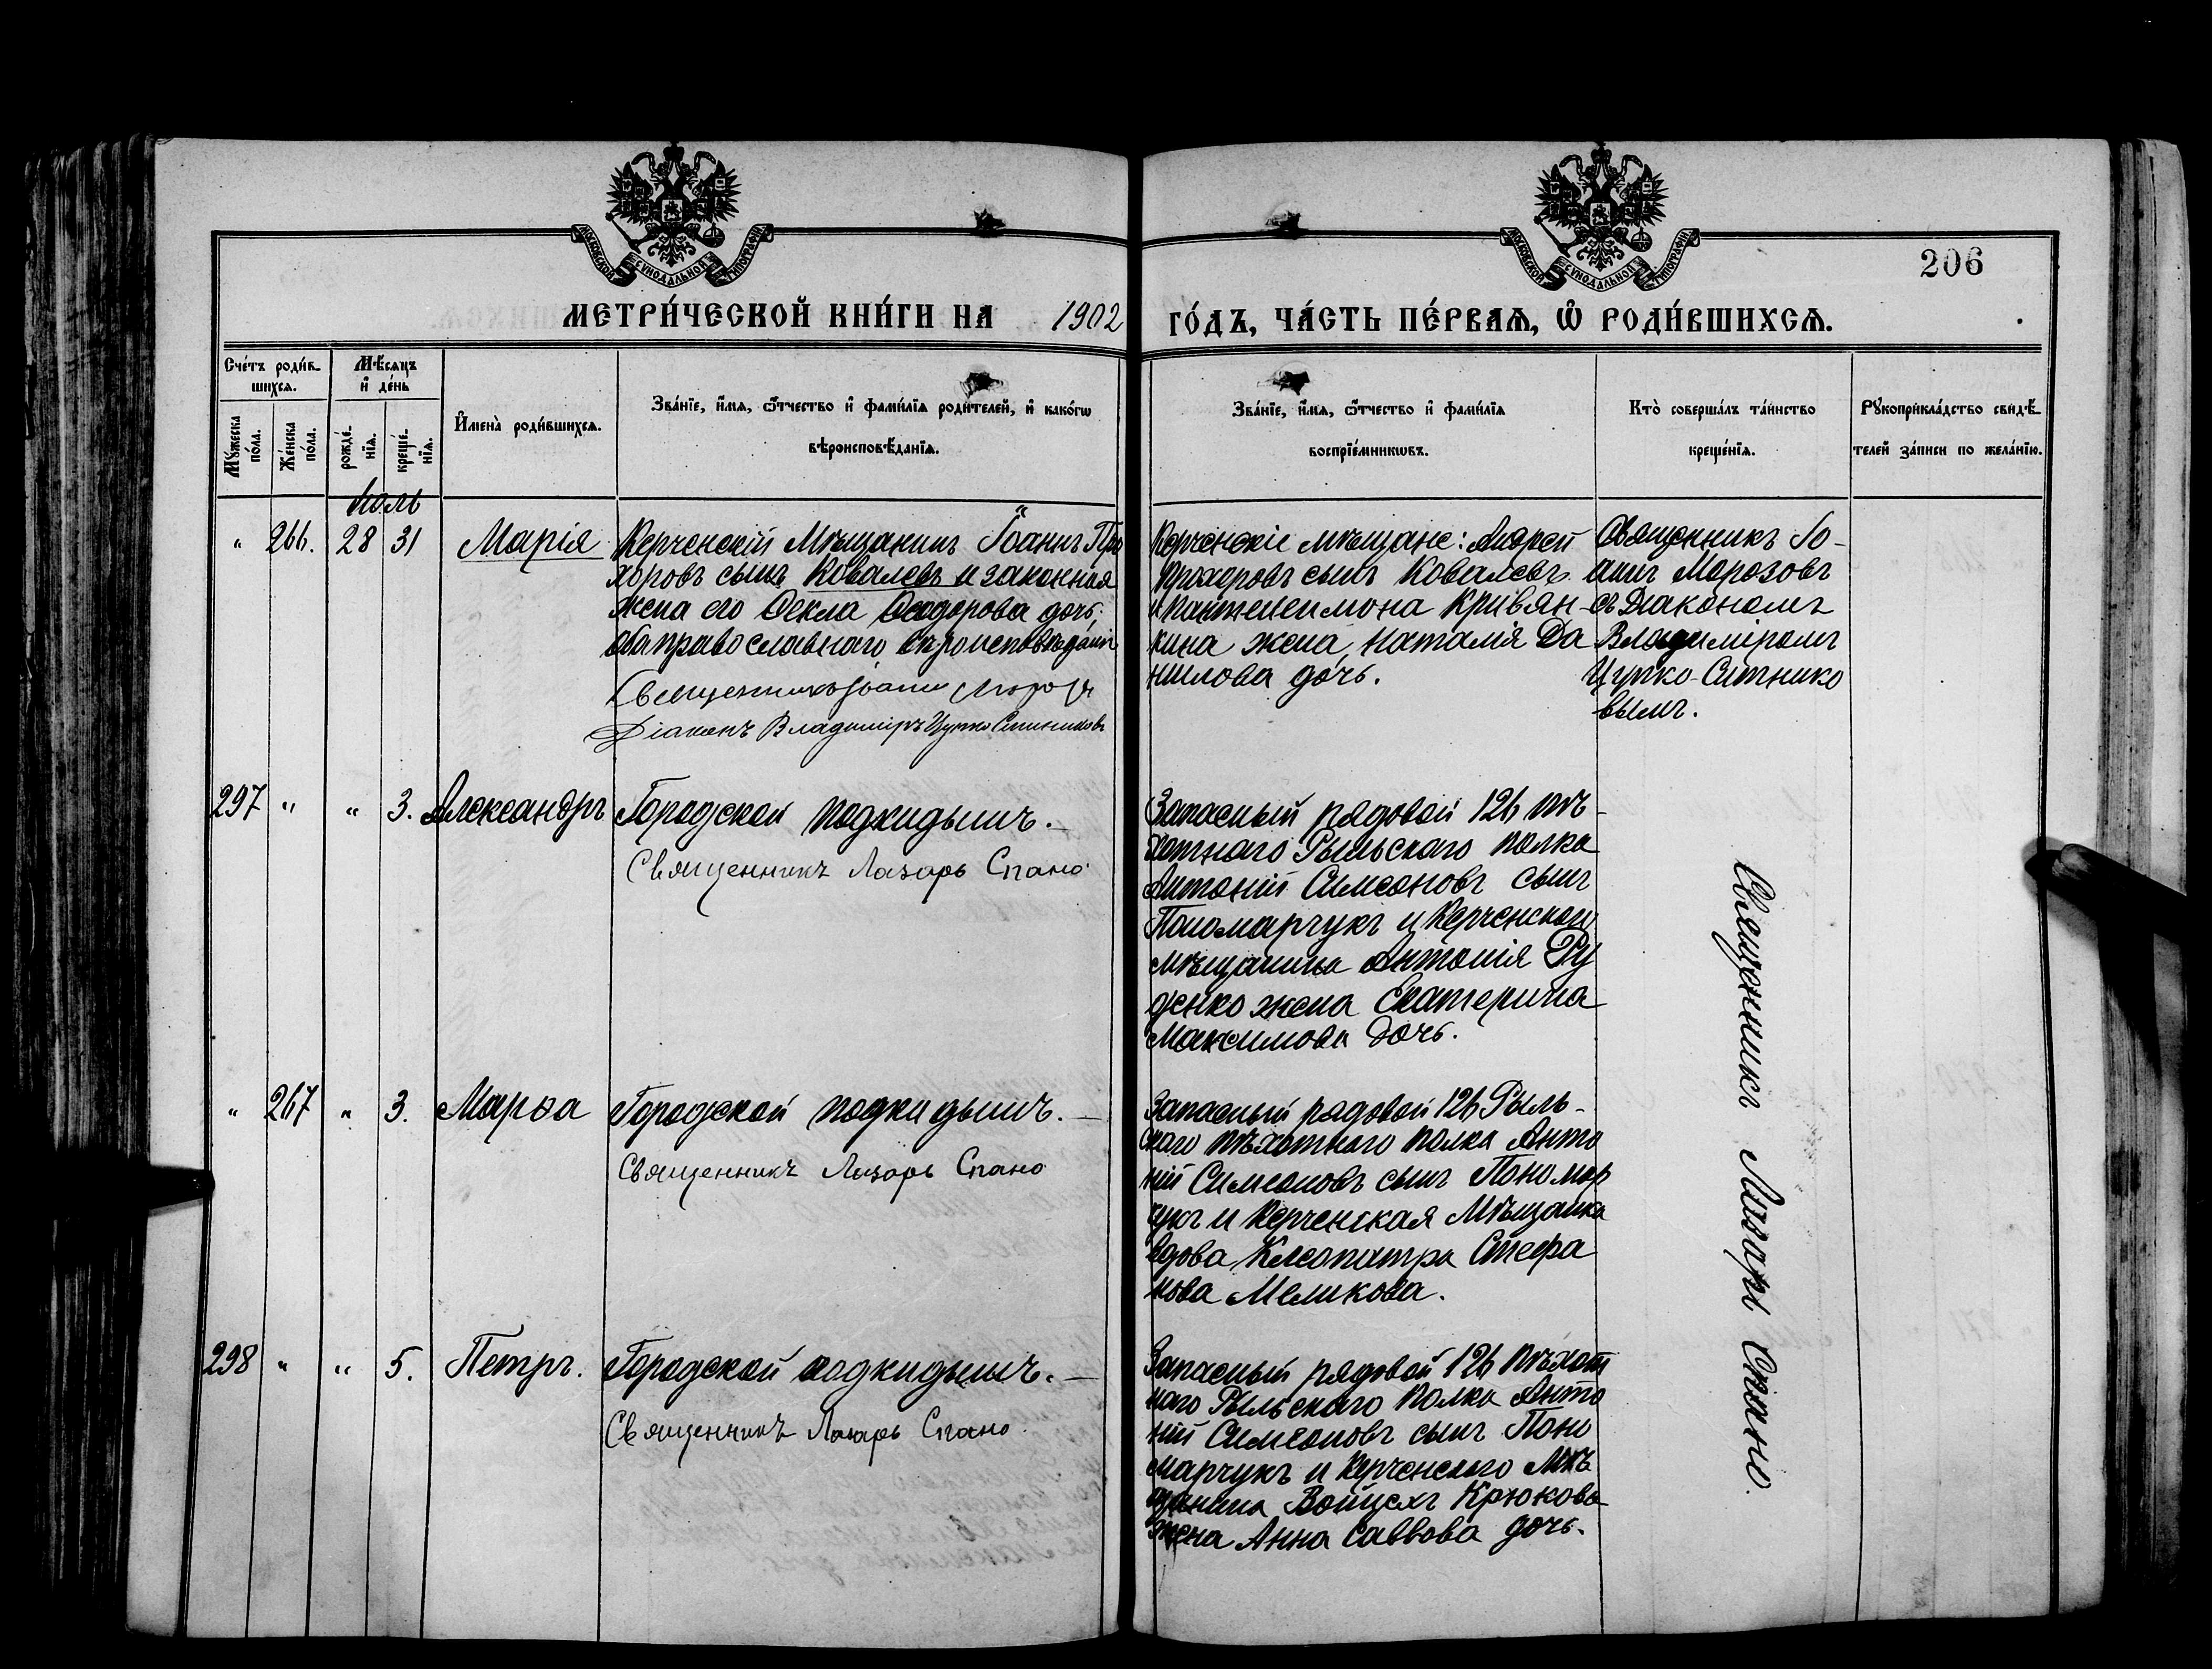 МОСКОВСКОЙ СѴНОДАЛЬНОЙ ТИПОГРАФІИ
МОСКОВСКОЙ СѴНОДАЛЬНОЙ ТИПОГРАФІИ
206
МЕТРИ́ЧЕСКОЙ КНИ́ГИ НА 1902 ГО́ДЪ, ЧА́СТЬ ПЕ́РВАѦ, Ѡ҆ РОДИ́ВШИХСѦ.
Сче́тъ роди́в-
шихсѧ.
Мꙋ́жеска
по́ла.
Же́нска
по́ла.
Мѣ́сѧцъ
и҆ де́нь
рожде́-
нїѧ.
креще́-
нїѧ.
И҆мена̀ роди́вшихсѧ.
Зва́нїе, и҆́мѧ, ѻ҆́тчество и҆ фами́лїѧ роди́телей, и҆ како́гѡ
вѣроисповѣ́данїѧ.
Зва́нїе, и҆́мѧ, ѻ҆́тчество и҆ фами́лїѧ
воспрїе́мникѡвъ.
Кто̀ соверша́лъ та́инство
креще́нїѧ.
Рꙋкоприкла́дство свидѣ́-
телей за́писи по жела́нїю.
Іюль
" 266. 28 31 Марія
Керченскій Мѣщанинъ Іоаннъ Про
хоровъ сынъ Ковалевъ и законная
жена его Ѳекла Ѳеодорова дочь,
оба православнаго вѣроисповѣданія
Священникъ Іоаннъ Морозовъ
Діаконъ Владиміръ Цупко-Ситниковъ
Керченскіе мѣщане: Андрей
Прохоровъ сынъ Ковалевъ
и Пантелеимона Кривян-
кина жена Наталія Да
нилова дочь.
Священникъ Іо-
аннъ Морозовъ
съ Діакономъ
Владиміромъ
Цупко-Ситнико
вымъ.
297 " " 3. Александръ
Городской подкидышъ.
Священникъ Лазарь Спано
Запасный рядовой 126 пѣ-
хотнаго Рыльскаго полка
Антоній Симеоновъ сынъ
Пономарчукъ и Керченскаго
мѣщанина Антонія Ру
денко жена Екатерина
Максимова дочь.
" 267 " 3. Марѳа
Городской подкидышъ.
Священникъ Лазарь Спано
Запасный рядовой 126 Рыль-
скаго пѣхотнаго полка Анто
ній Симеоновъ сынъ Пономар
чукъ и Керченская Мѣщанка
вдова Клеопатра Стефа
нова Меликова.
298 " " 5. Петръ.
Городской подкидышъ.
Священникъ Лазарь Спано
Запасный рядовой 126 пѣхот
наго Рыльскаго полка Анто
ній Симеоновъ сынъ Поно
марчукъ и Керченскаго Мѣ
щанина Крюкова
жена Анна Саввова дочь.
Священникъ Лазарь Спано.